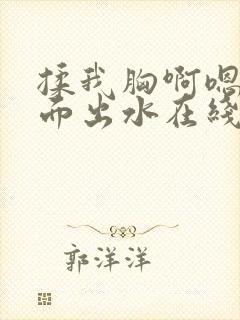 揉我胸啊嗯
而出水在线
郭洋洋